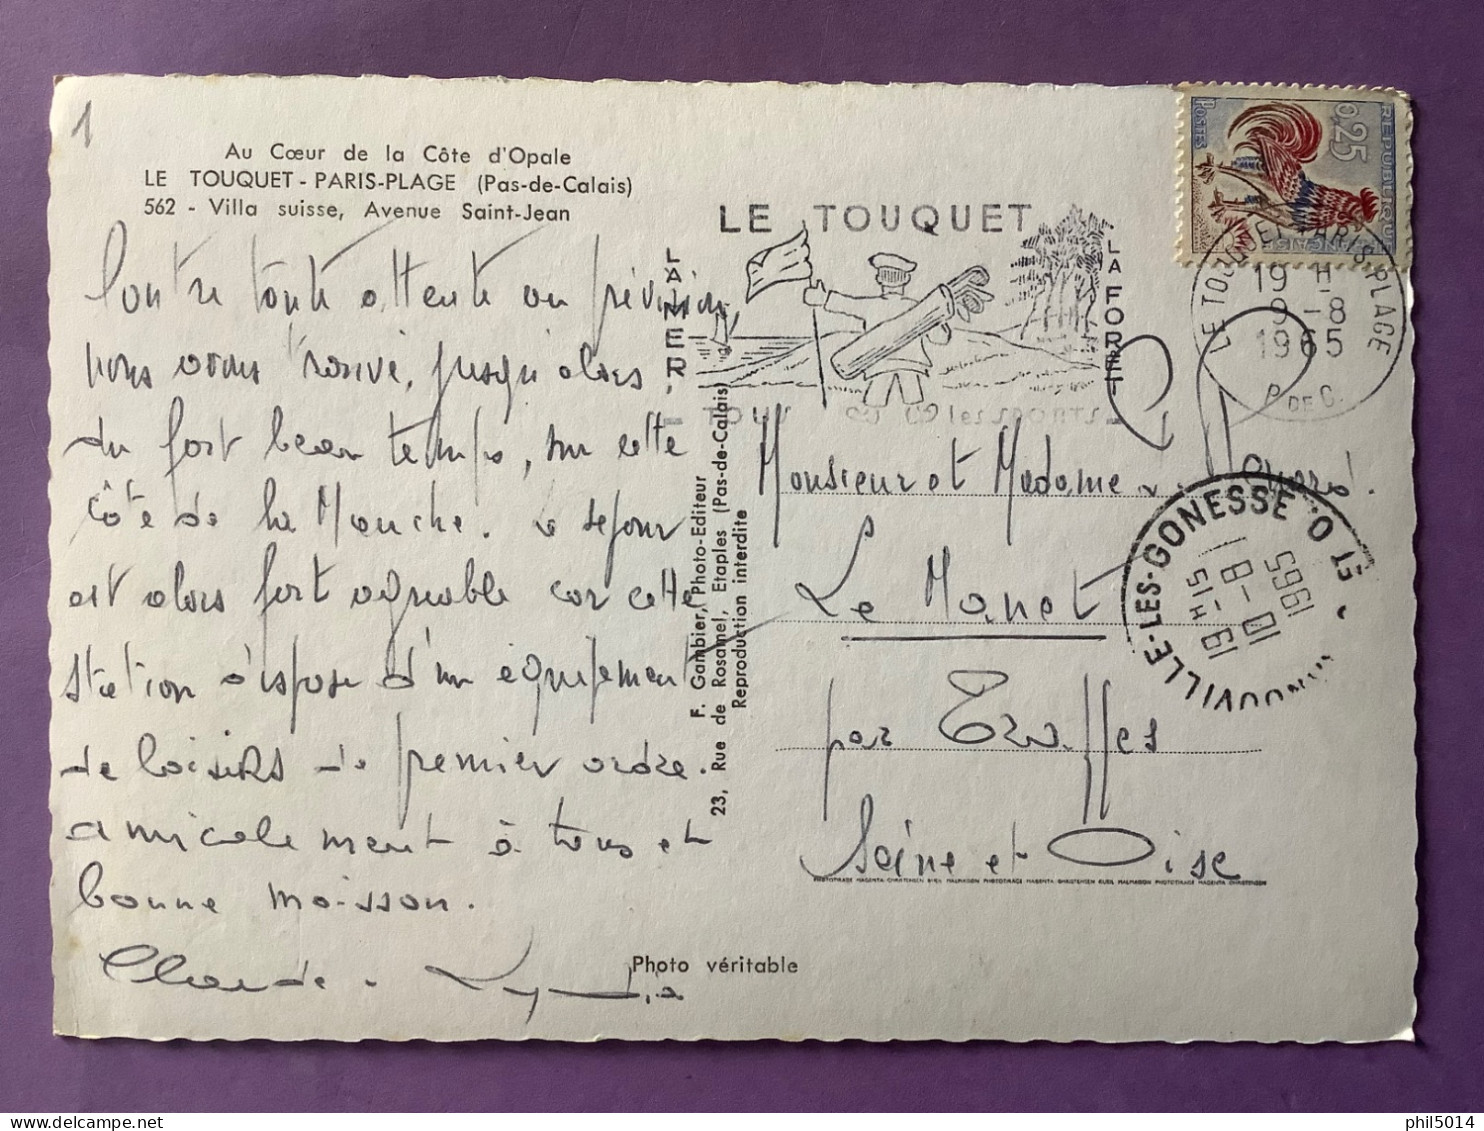 1
Au Cœur de la Côte d'Opale
LE TOUQUET - PARIS-PLAGE (Pas-de-Calais)
562 - Villa suisse, Avenue Saint-Jean
Contre toute attente ou prévision,
nous avons trouvé, jusqu'alors
du fort beau temps, sur cette
côte de la Manche. Le séjour
est alors fort agréable car cette
station dispose d'un équipement
de loisirs de premier ordre.
amicalement à tous et
bonne moisson.
Claude
F. Gambier, Photo-Editeur
23, Rue de Rosamel, Etaples (Pas-de-Calais)
Reproduction interdite
Photo véritable
LE TOUQUET
LA MER
LA FORET
TOUS les SPORTS
REPUBLIQUE FRANÇAISE
POSTES
0,25
LE TOUQUET-PARIS-PLAGE
19 H
9-8
1965
P. DE C.
Monsieur et Madame
Le Manet
par
Seine et Oise
VILLE-LES-GONESSE
19 H 15
10-8
1965
phil5014